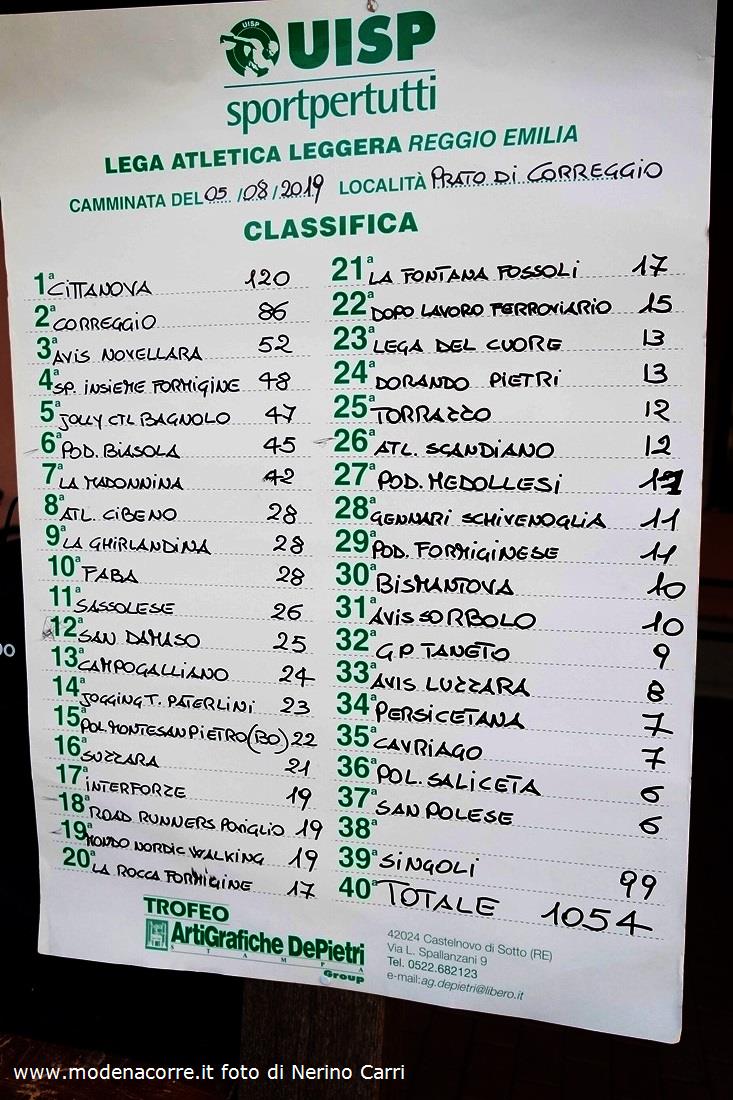 UISP
UISP
sportpertutti
LEGA ATLETICA LEGGERA REGGIO EMILIA
CAMMINATA DEL 05/08/2019 LOCALITÀ PRATO DI CORREGGIO
CLASSIFICA
1ª CITTANOVA 120
2ª CORREGGIO 86
3ª AVIS NOVELLARA 52
4ª SP. INSIEME FORMIGINE 48
5ª JOLLY CTL BAGNOLO 47
6ª POD. BIASOLA 45
7ª LA MADONNINA 42
8ª ATL. CIBENO 28
9ª LA GHIRLANDINA 28
10ª FABA 28
11ª SASSOLESE 26
12ª SAN DAMASO 25
13ª CAMPOGALLIANO 24
14ª JOGGING T. PATERLINI 23
15ª POL MONTESAN PIETRO (BO) 22
16ª SUZZARA 21
17ª INTERFORZE 19
18ª ROAD RUNNERS POVIGLIO 19
19ª MONDO NORDIC WALKING 19
20ª LA ROCCA FORMIGINE 17
21ª LA FONTANA FOSSOLI 17
22ª DOPO LAVORO FERROVIARIO 15
23ª LEGA DEL CUORE 13
24ª DORANDO PIETRI 13
25ª TORRAZZO 12
26ª ATL. SCANDIANO 12
27ª POD. MEDOLLESI
28ª GENNARI SCHIVENOGLIA 11
29ª POD. FORMIGINESE 11
30ª BISMANTOVA 10
31ª AVIS SORBOLO 10
32ª G.P. TANETO 9
33ª AVIS LUZZARA 8
34ª PERSICETANA 7
35ª CAVRIAGO 7
36ª POL. SALICETA 6
37ª SAN POLESE 6
38ª
39ª SINGOLI 99
40ª TOTALE 1054
TROFEO
ArtiGrafiche DePietri
STAMPA
Group
42024 Castelnovo di Sotto (RE)
Via L. Spallanzani 9
Tel. 0522.682123
e-mail:ag.depietri@libero.it
www.modenacorre.it foto di Nerino Carri